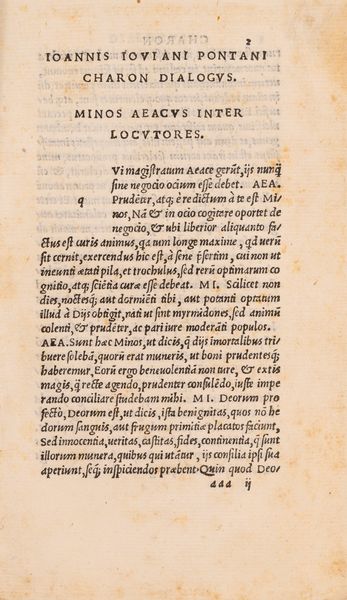 2
IOANNIS IOVIANI PONTANI
CHARON DIALOGVS.
MINOS AEACVS INTER
LOCVTORES.
Vi magistratum Aeace gerũt, ijs nunq̃
sine negocio ocium esse debet. AEA.
q Prudẽter, atq; è re dictum à te est Mi/
nos, Nã & in ocio cogitare oportet de
negocio, & ubi liberior aliquanto fa/
ctus est curis animus, q̃a tum longe maxime, qd uerũ
sit cernit, exercendus hic est, à sene p̃sertim, cui non ut
ineunti ætati pila, et trochulus, sed rerũ optimarum co
gnitio, atq; sciẽtia curæ esse debeat. M I. Scilicet non
dies, noctesq; aut dormiẽti tibi, aut potanti optatum
illud à Dijs obtigit, nati ut sint myrmidones, sed animũ
colenti, & prudẽter, ac pari iure moderãti populos.
AEA. Sunt hæc Minos, ut dicis, q̃ dijs imortalibus tri/
buere solebã, quorũ erat muneris, ut boni prudentesq;
haberemur, Eorũ ergo beneuolentiã non ture, & extis
magis, q̃ recte agendo, prudenter consulẽdo, iuste impe
rando conciliare studebam mihi. M I. Deorum pro
fectò, Deorum est, ut dicis, ista benignitas, quos nõ hæ
dorum sanguis, aut frugum primitiæ placatos faciunt,
Sed innocentia, ueritas, castitas, fides, continentia, q̃ sunt
illorum munera, quibus qui utãtur, ijs consilia ipsi sua
aperiunt, seq; inspiciendos præbent. Quin quod Deo/
aaa ij